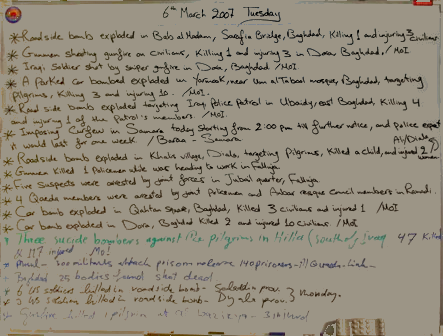 6th March 2007 Tuesday
* Road side bomb exploded in Bab al Madam, Sarafia Bridge, Baghdad, Killing 1 and injuring 3 civilians
* Gunmen shooting gunfire on civilians, Killing 1 and injuring 3 in Dora, Baghdad / MOI
* Iraqi Soldier shot by sniper gunfire in Dora, Baghdad / MOI
* A Parked car bombed exploded in Yarmouk, near Um al Tabool mosque, Baghdad, targeting
pilgrims, Killing 3 and injuring 10. / MOI.
* Road side bomb exploded targeting Iraqi Police Patrol in Ubaidy, east Baghdad, Killing 4
and injuring 1 of the Patrol's members. / MOI
* Imposing Curfew in Samara today starting from 2:00 pm till further notice, and police expect
it would last for one week. / Samara
* Roadside bomb exploded in Khalis village, Diala, targeting pilgrims, Killed a child, and injured 2
women
* Gunmen Killed 1 Policeman while was heading to work in Falluja
* Five suspects were arrested by joint forces in Jubail quarter, Falluja
* 4 Qaeda members were arrested by joint Policemen and Anbar rescue council members in Ramadi.
* Car bomb exploded in Qahtan square, Baghdad, Killed 3 civilians and injured 1 / MOI
* Car bomb exploded in Dora, Baghdad Killed 2 and injured 10 civilians / MOI
* Three suicide bombers against the pilgrims in Hilla (south of Iraq 47 Killed
& 117 injured MOI
militants attack prison 140 prisoners
Baghdad 25 bodies found shot dead
6 US soldiers killed in roadside bomb - Salahdin prov.
3 US soldiers killed in roadside bomb - Dyala prov. } Monday.
Gunfire killed 1 pilgrim